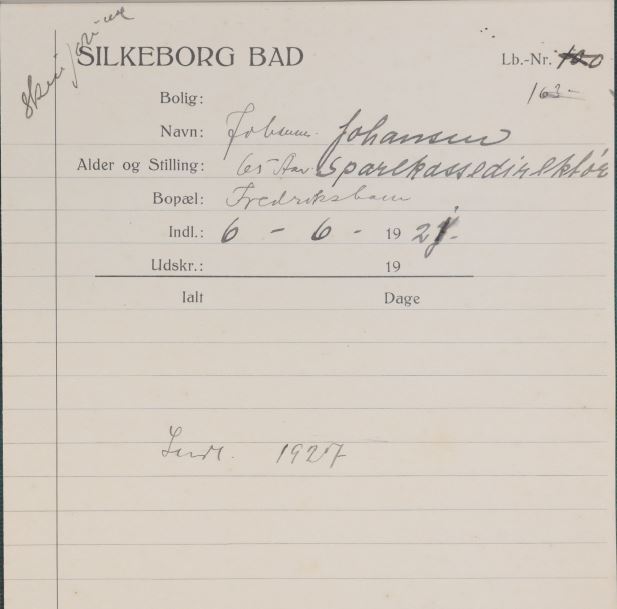 SILKEBORG BAD
Lb.-Nr. 100
163-
Bolig:
Navn: Johansen
Alder og Stilling: 65 Aar Sparekassedirektør
Bopæl: Frederikshavn
Indl.: 6 - 6 - 19 27.
Udskr.: 19
Ialt Dage
Indl. 1927